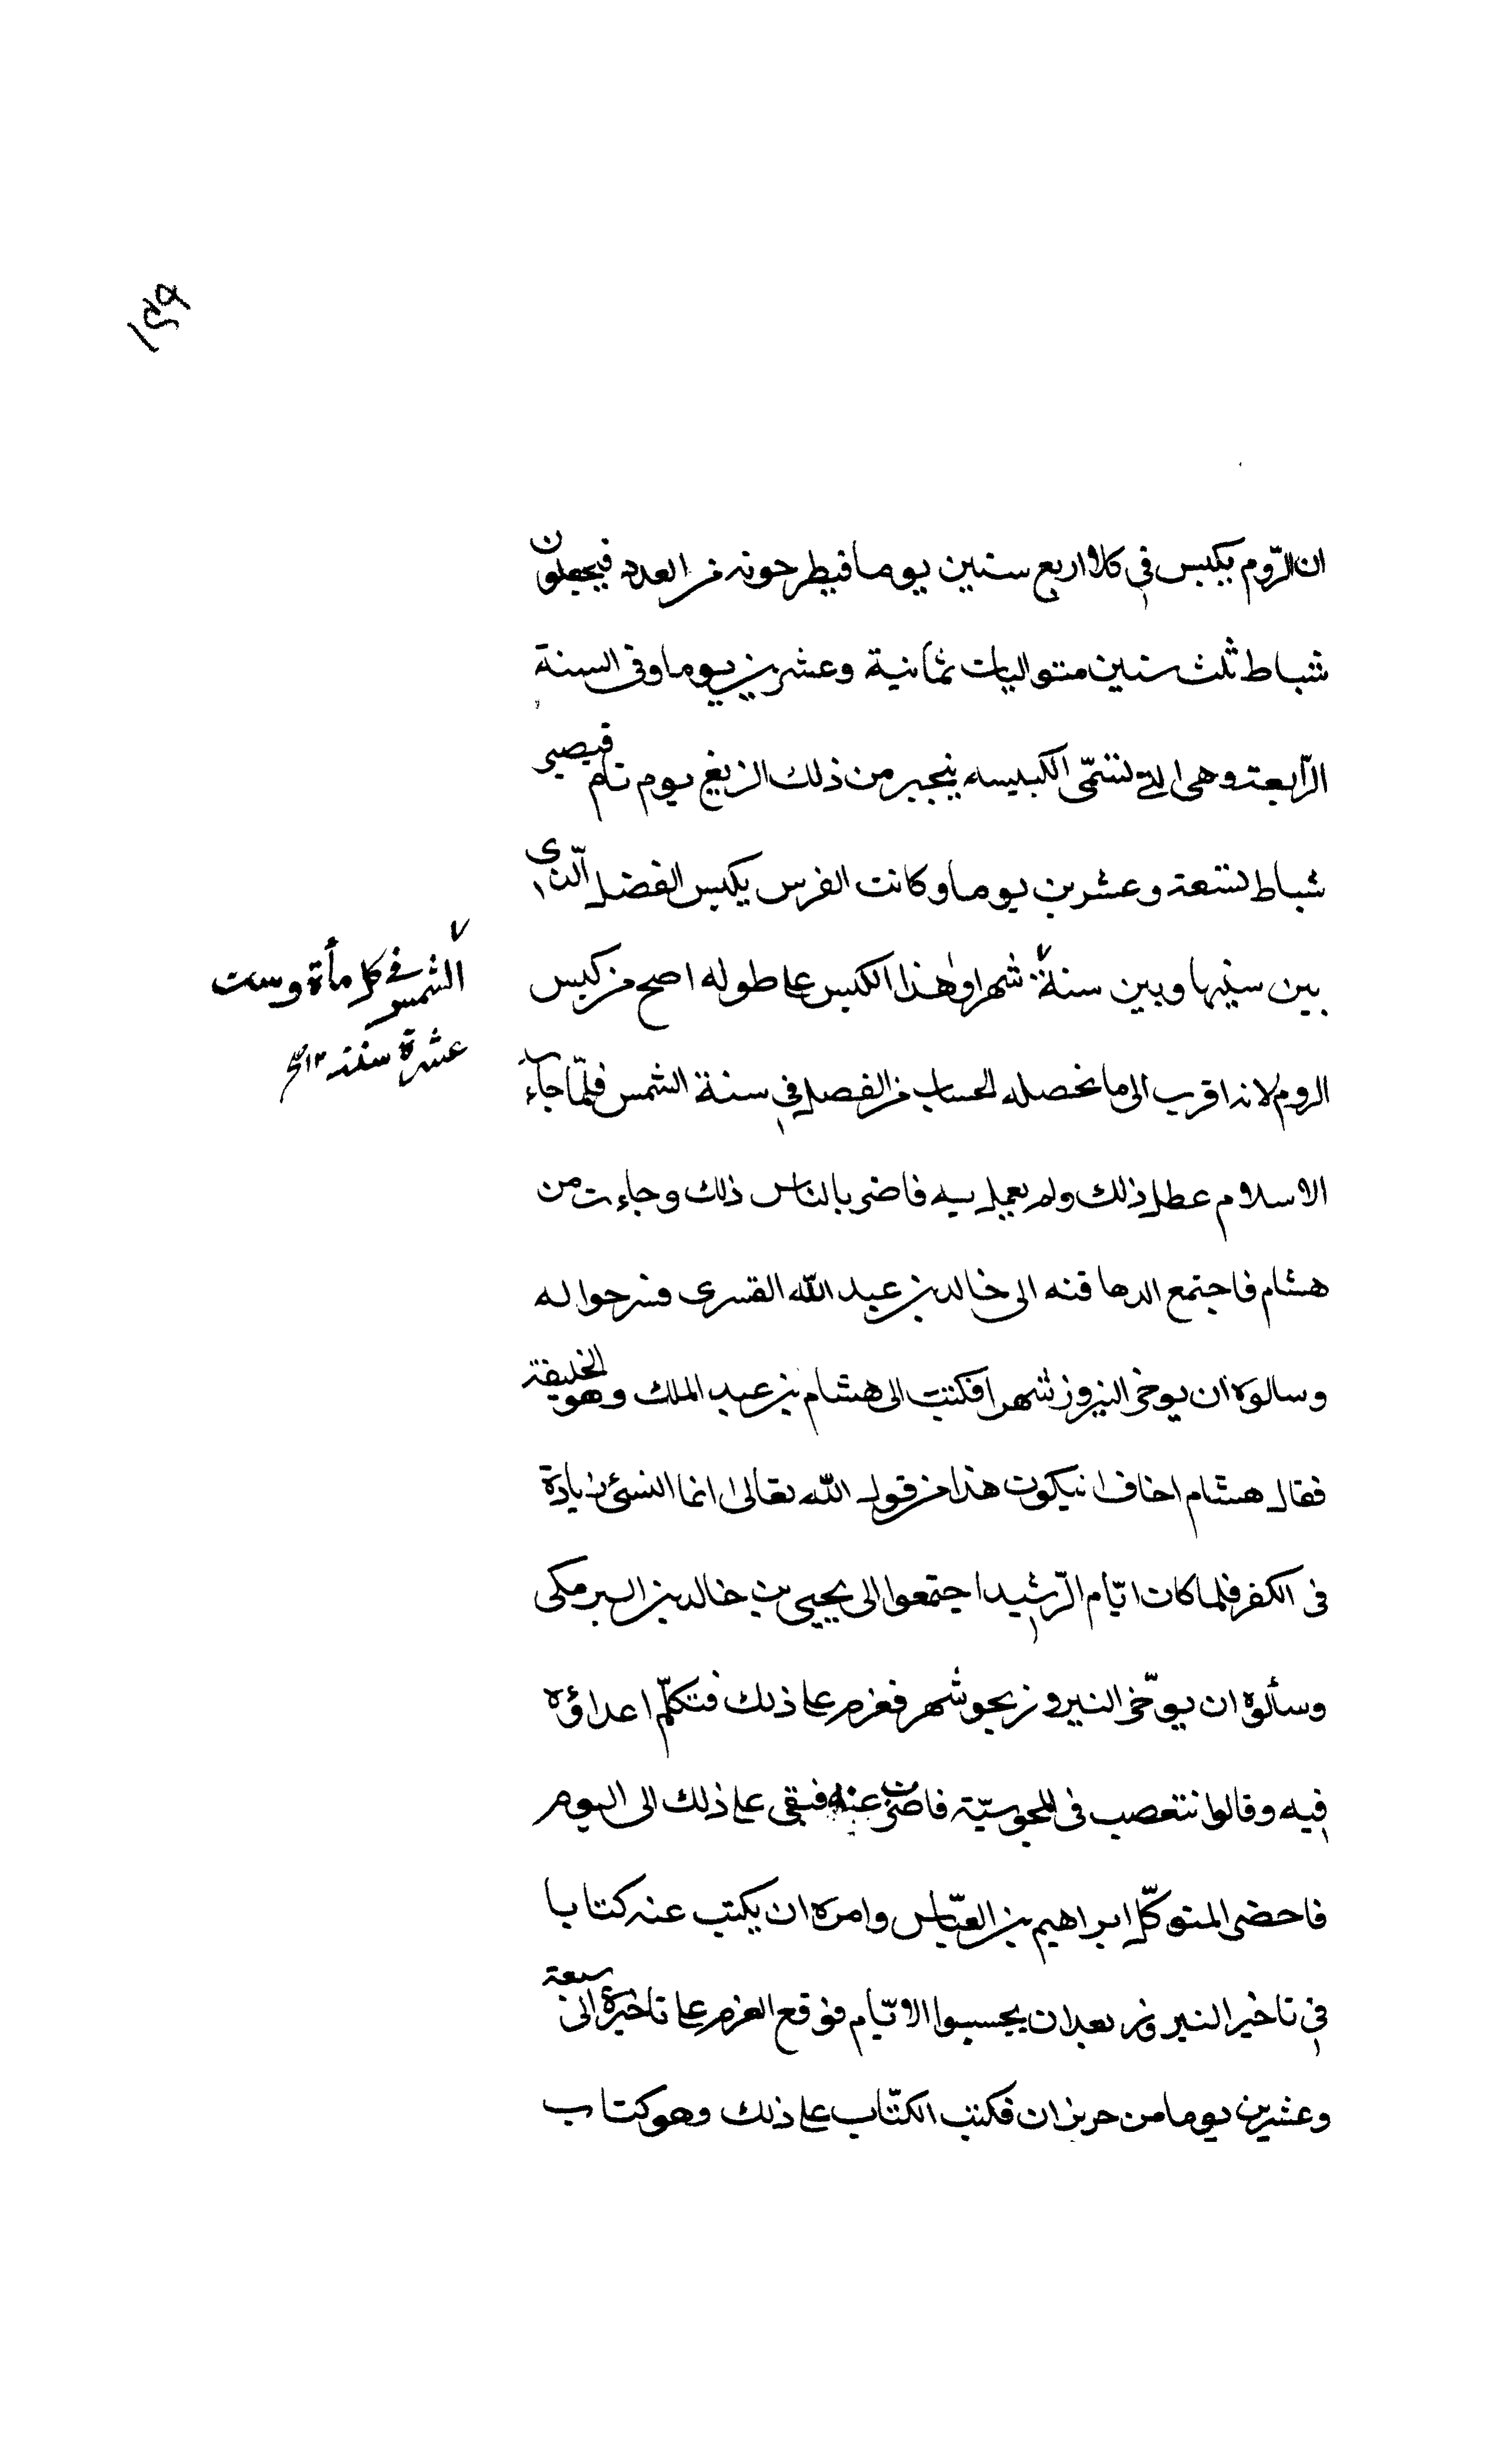 ١٥٩
ان الرّوم يكبس في كل اربع سنين يوما فيطرحونه من العدد فيجعلون
شباط ثلث سنين متواليات ثمانية وعشرين يوما وفى السنة
الرّابعة وهى التى تسمّى الكبيسه ينجبر من ذلك الزيغ يوم تام فيصير
شباط تسعة وعشرين يوما وكانت الفرس يكبس الفضل الّذى
بين سنيها وبين سنة شهرا وهذا الكبس على طوله اصح من كبس
الشمس في كل مأة وست
عشرة سنة ١٢ صح
الروم لانه اقرب الى ما يحصله الحساب من الفصل في سنة الشمس فلمّا جاء
الاسلام عطل ذلك ولم يعمل به فاضر بالناس ذلك وجاء ت من
هشام فاجتمع الدهاقنه الى خالد بن عبد الله القسرى فشرحوا له
وسالوه ان يوخر النيروز شهرا فكتب الى هشام بن عبد الملك وهو الخليفة
فقال هشام اخاف ان يكون هذا من قول الله تعالى انما النسئ زيادة
فى الكفر فلما كان ايّام الرّشيد اجتمعوا الى يحيى بن خالد بن البرمكى
وسألوه ان يوّخر النيروز بحو شهر فعزم على ذلك فتكلّم اعداؤه
فيه وقالوا تتعصب فى المجوسيّة فاضرب عنه فبقى على ذلك الى اليوم
فاحضر المتوكّل ابراهيم بن العبّاس وامره ان يكتب عنه كتابا
في تاخير النيروز بعد ان يحسبوا الايّام فوقع العزم على تاخيره الى سبعة
وعشرين يوما من حزيران فكتب الكتّاب على ذلك وهو كتاب